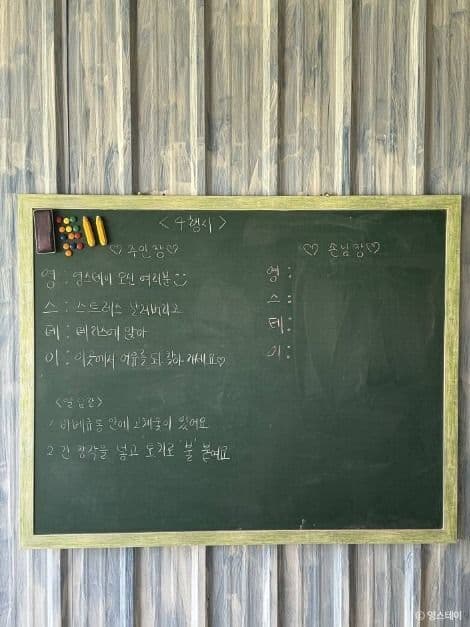 <4행시>
♡ 주인장♡
영 : 영스테이 오신 여러분
스 : 스트레스 날려버리고
테 : 테라스에 앉아
이 : 이곳에서 여유를 되찾아 가세요♡
♡ 손님장♡
영 :
스 :
테 :
이 :
<알림장>
1. 바베큐통 안에 고체 있어요
2. 간 장작을 넣고 토치로 '불' 붙여요
© 영스테이